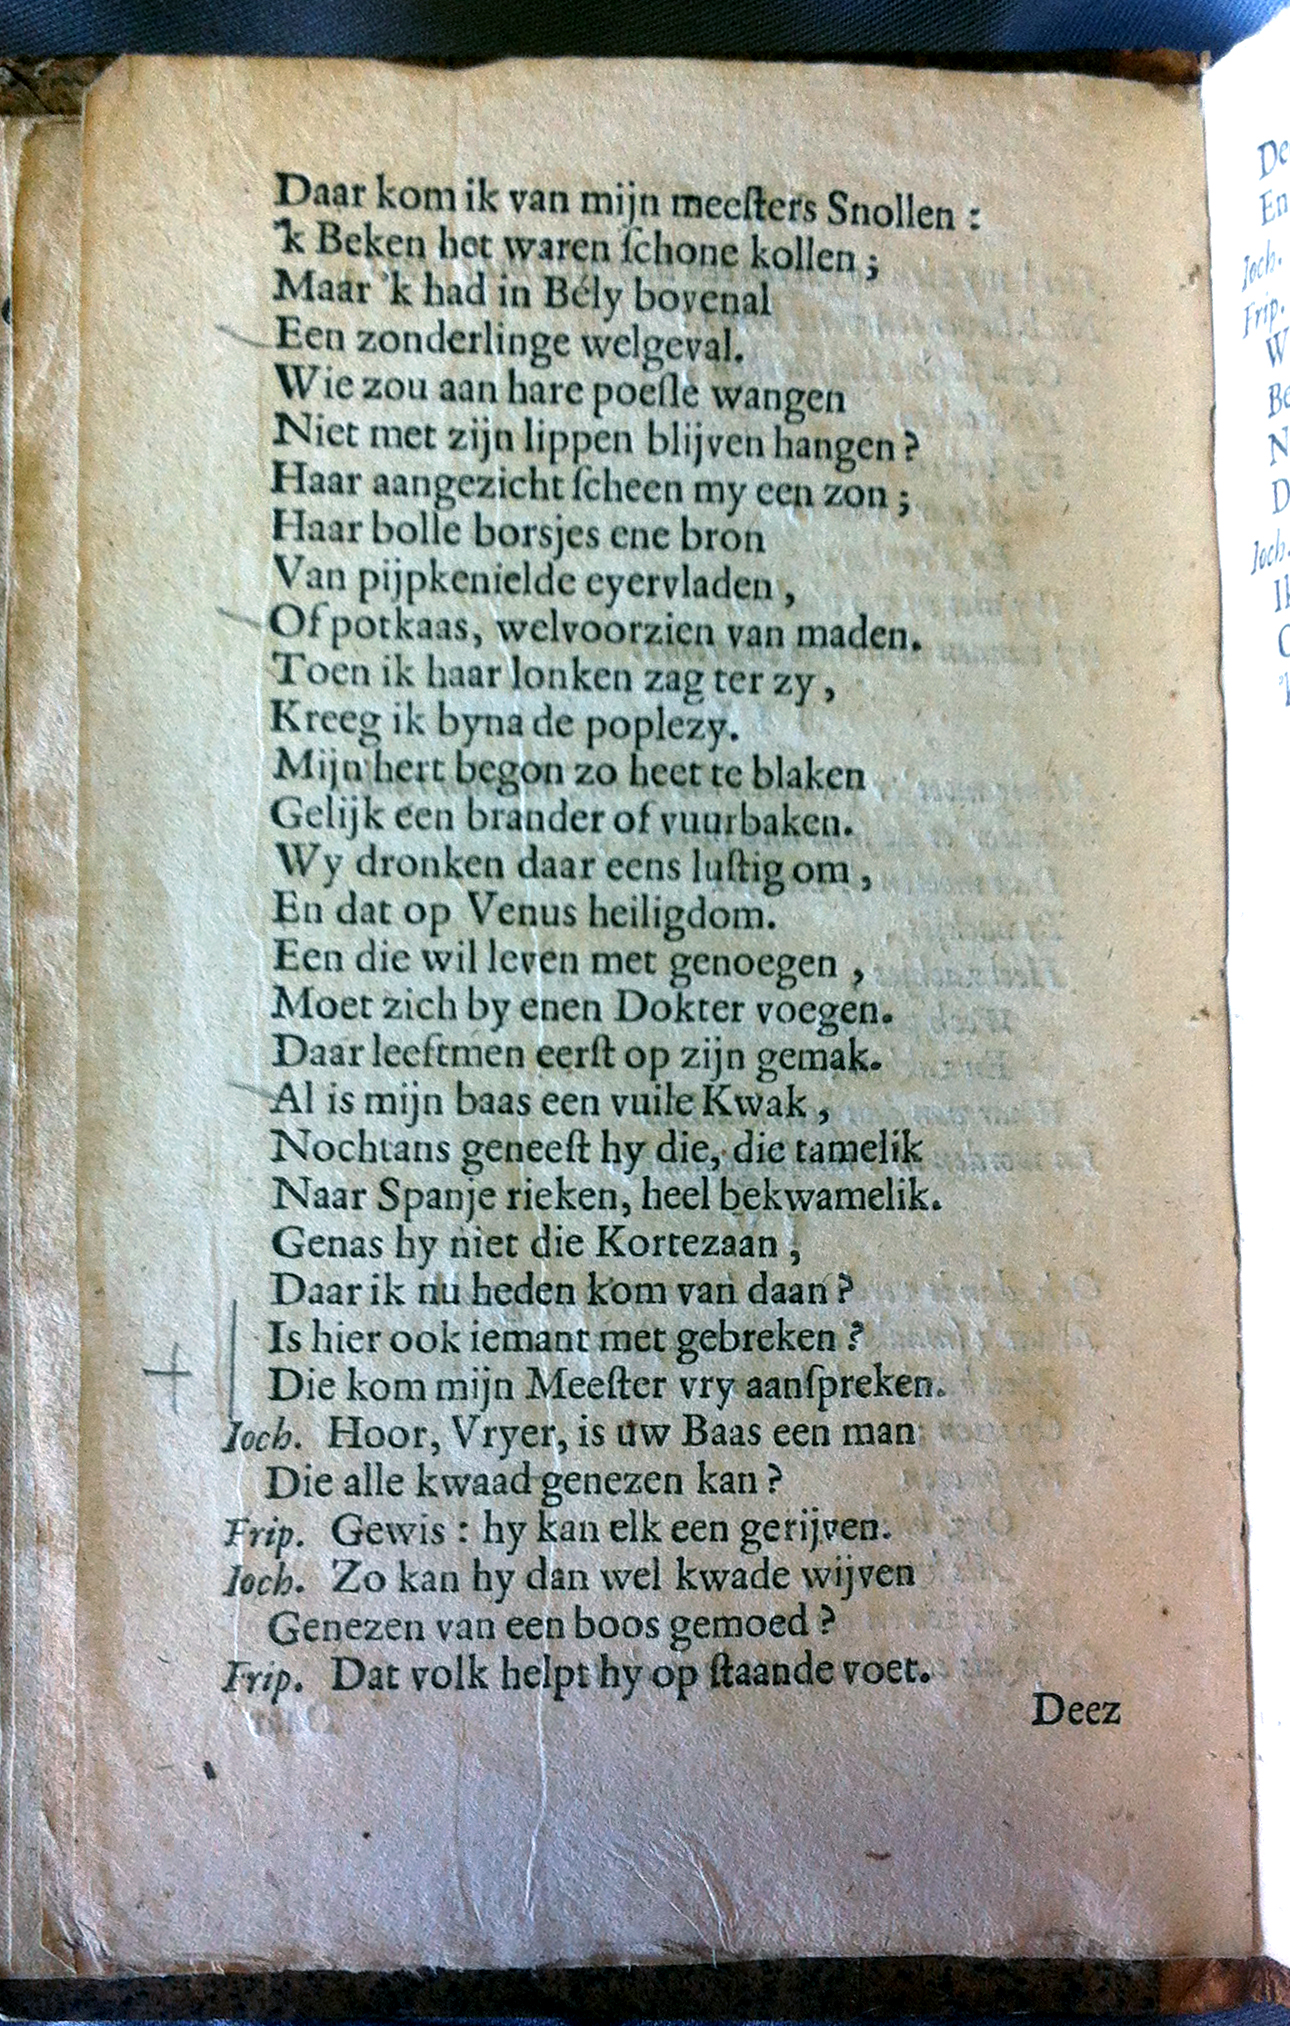 Daar kom ik van mijn meeſters Snollen :
'k Beken het waren ſchone kollen ;
Maar 'k had in Bély bovenal
Een zonderlinge welgeval.
Wie zou aan hare poeſle wangen
Niet met zijn lippen blijven hangen ?
Haar aangezicht ſcheen my een zon ;
Haar bolle borsjes ene bron
Van pijpkenielde eyervladen ,
Of potkaas, welvoorzien van maden.
Toen ik haar lonken zag ter zy ,
Kreeg ik byna de poplezy.
Mijn hert begon zo heet te blaken
Gelijk een brander of vuurbaken.
Wy dronken daar eens luſtig om ,
En dat op Venus heiligdom.
Een die wil leven met genoegen ,
Moet zich by enen Dokter voegen.
Daar leeftmen eerſt op zijn gemak.
Al is mijn baas een vuile Kwak ,
Nochtans geneeſt hy die, die tamelik
Naar Spanje rieken, heel bekwamelik.
Genas hy niet die Kortezaan ,
Daar ik nu heden kom van daan ?
Is hier ook iemant met gebreken ?
Die kom mijn Meeſter vry aanſpreken.
Ioch. Hoor, Vryer, is uw Baas een man
Die alle kwaad genezen kan ?
Frip. Gewis : hy kan elk een gerijven.
Ioch. Zo kan hy dan wel kwade wijven
Genezen van een boos gemoed ?
Frip. Dat volk helpt hy op ſtaande voet.
Deez
Ioch.
Frip.
Ioch.